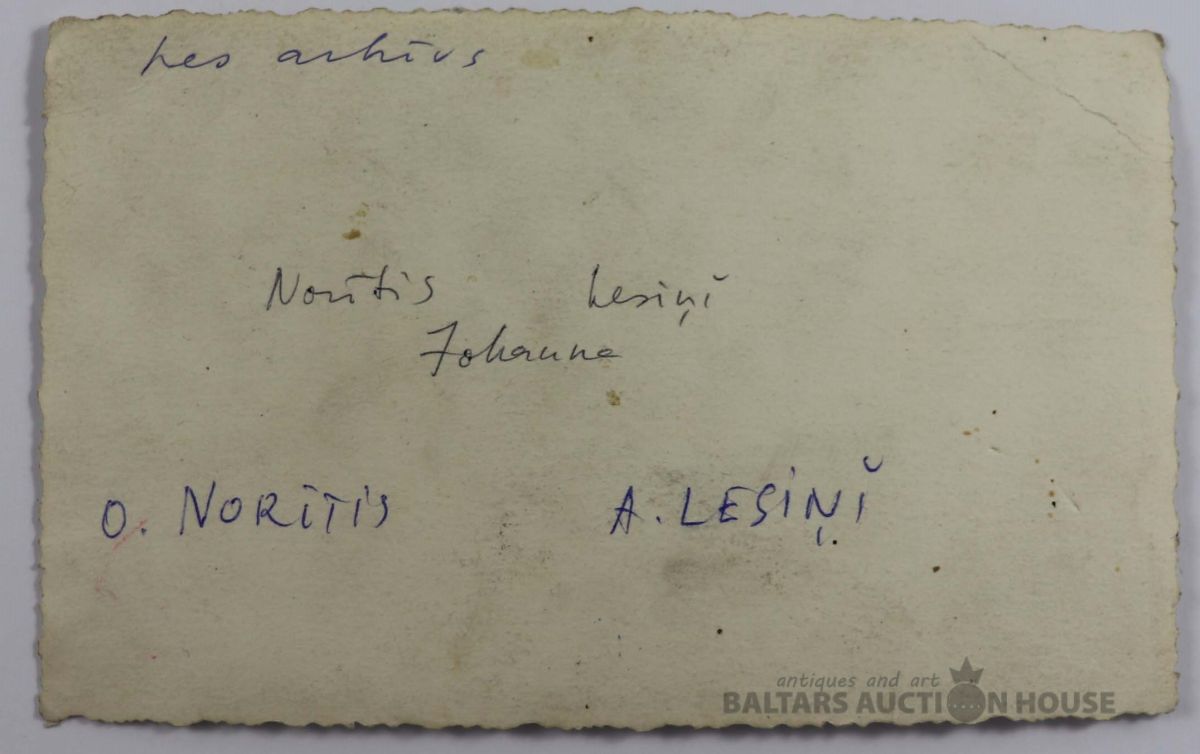 Les arhīvs
Norītis Lesiņi
Johanna
O. NORĪTIS A. LESIŅI
antiques and art
BALTARS AUCTION HOUSE